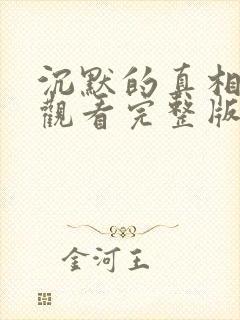 沉默的真相
觀看完整版
金河王